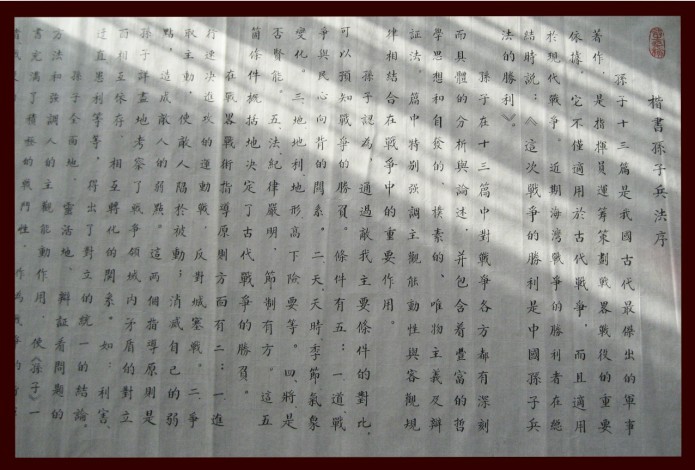 楷書孫子兵法序
孫子十三篇是我國古代最傑出的軍事
著作，是指揮員運籌策劃戰畧戰役的重要
依據。它不僅適用於古代戰爭，而且適用
於現代戰爭。近期海灣戰爭的勝利者在總
結時說：《這次戰爭的勝利是中國孫子兵
法的勝利》。
孫子在十三篇中對戰爭各方都有深刻
而具體的分析與論述，并包含着豐富的哲
學思想和自發的、樸素的、唯物主義及辯
証法，篇中特别强調主觀能動性與客觀規
律相結合在戰爭中的重要作用。
孫子認為，通過敵我主要條件的對比，
可以預知戰爭的勝負。條件有五：一道，戰
爭與民心向背的關系。二天，天時，季節氣象
變化。三、地地利，地形高下險要等。四、將是
否賢能。五、法紀律嚴明，節制有方。這五
箇條件概括地决定了古代戰爭的勝負。
在戰畧戰術指導原則方面有二：一、進
行速决進攻的運動戰，反對城塞戰。二、爭
取主動，使敵人陷於被動；消滅自己的弱
點，造成敵人的弱點。這兩個指導原則是
孫子詳盡地考察了戰爭領域内矛盾的對立
而相互依存，相互轉化的關系。如：利害、
迂直患利等等，得出了對立的統一的結論。
孫子全面地、靈活地、辯証看問題的
方法和强調人的主觀能動作用，使《孫子》一
書充滿了積極的戰鬥性，